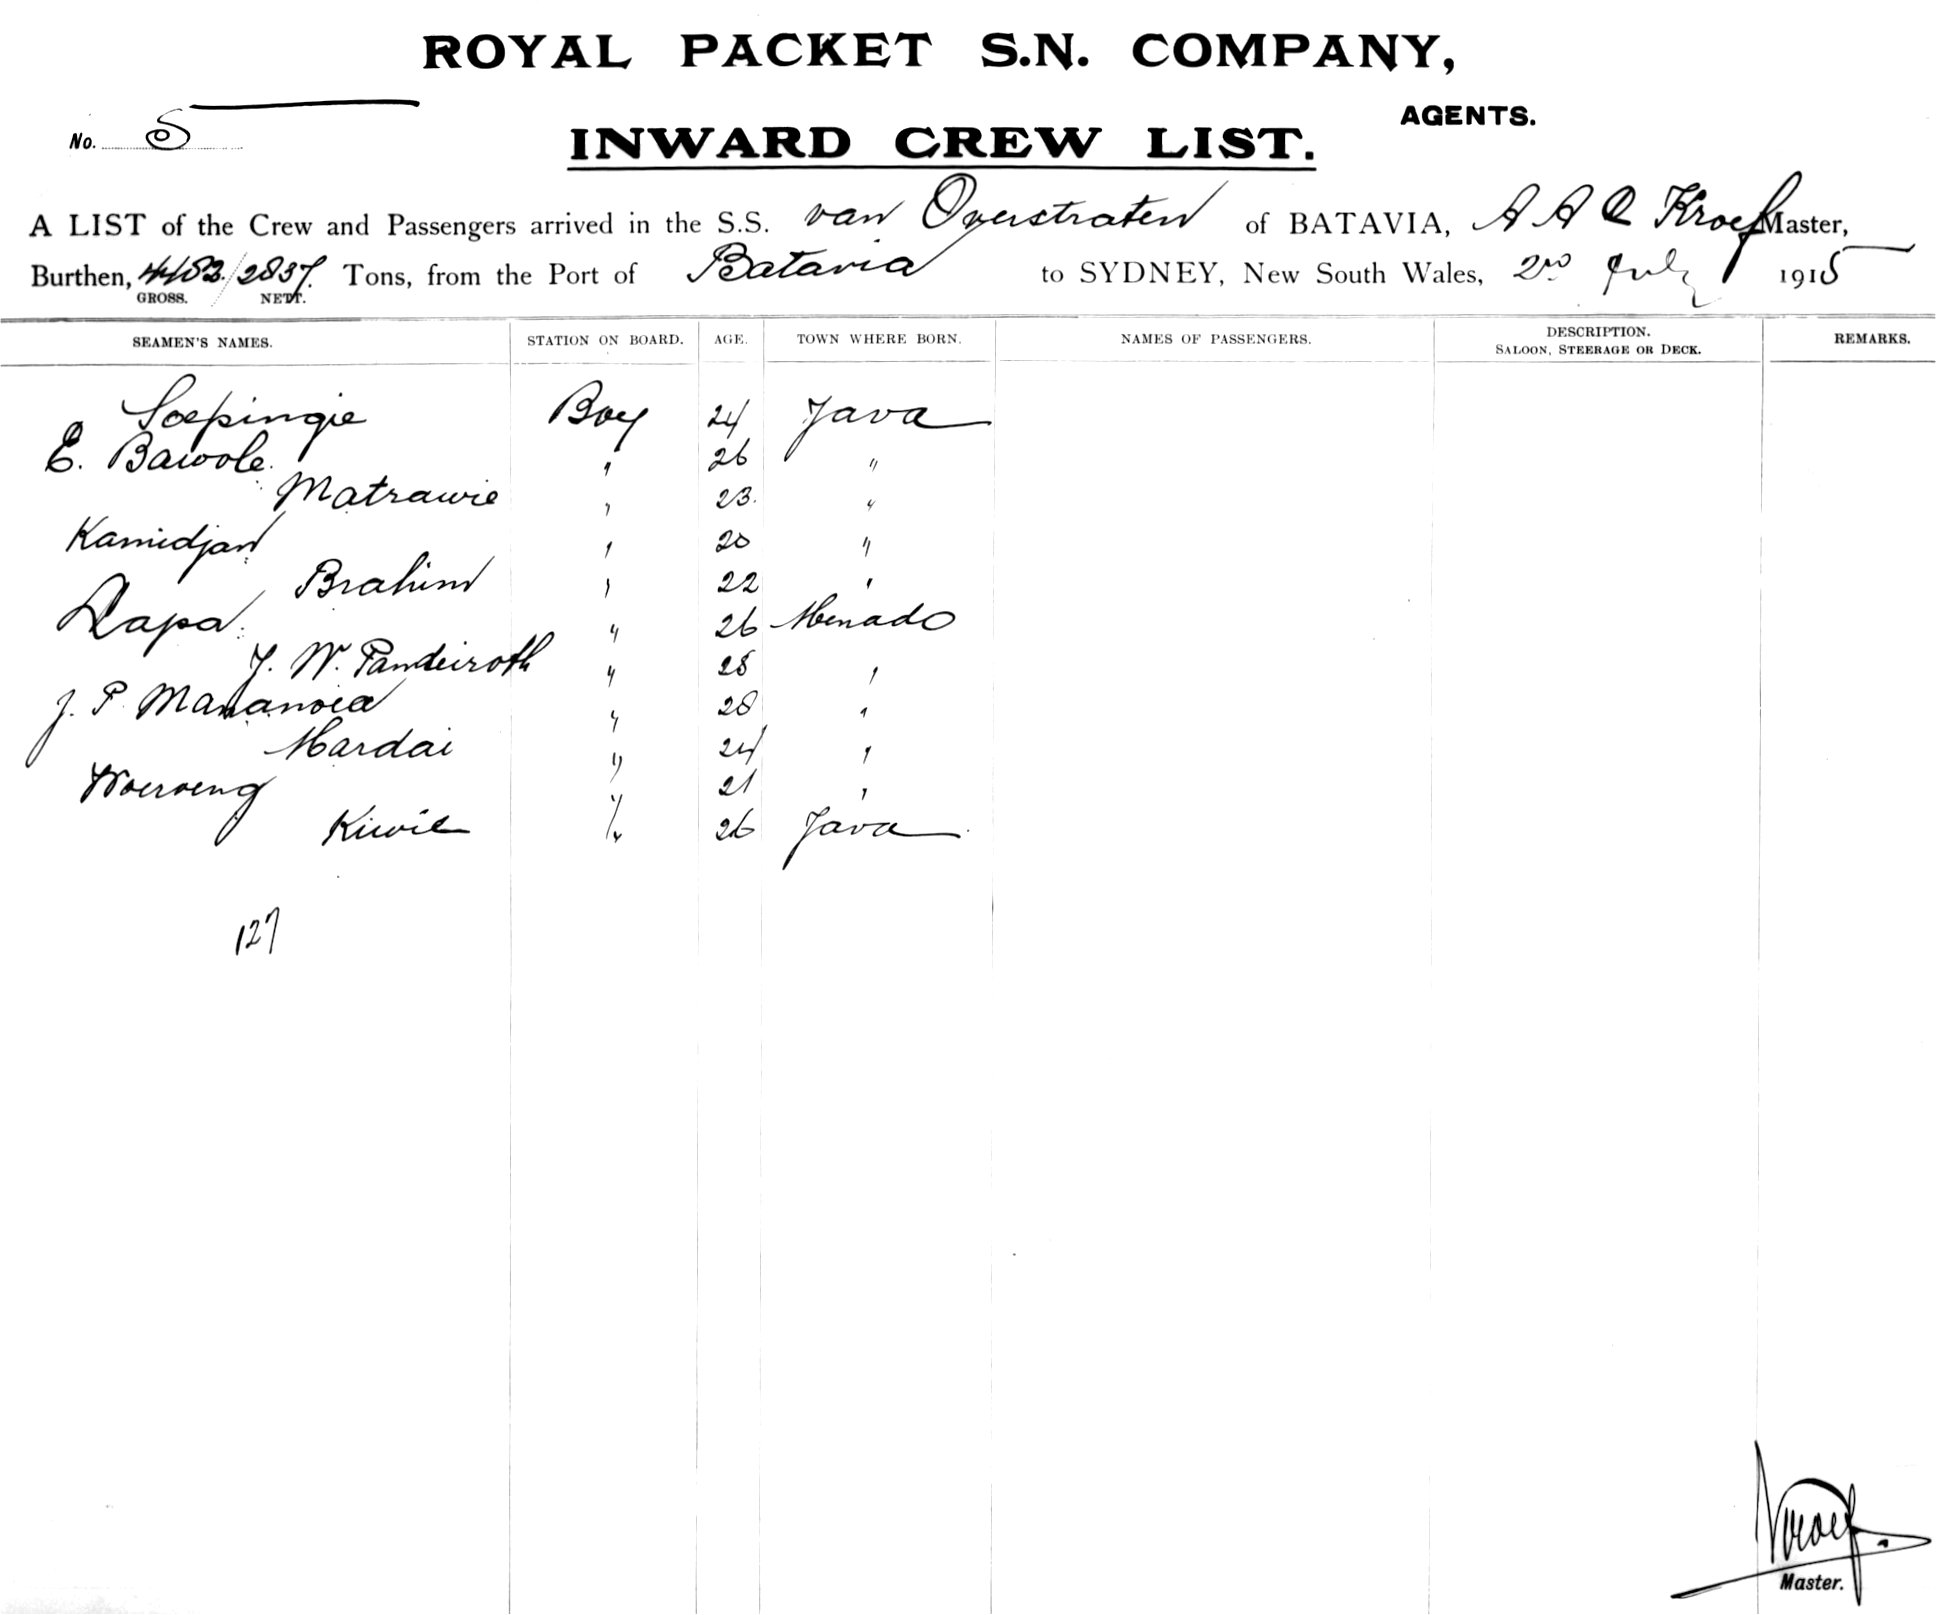 ROYAL PACKET S.N. COMPANY,
AGENTS.
No. 5
INWARD CREW LIST.
A LIST of the Crew and Passengers arrived in the S.S. van Overstraten of BATAVIA, A A Q Kroef Master,
Burthen, 4483/2837 Tons, from the Port of Batavia to SYDNEY, New South Wales, 2nd July 1915
GROSS. NETT.
SEAMEN'S NAMES. STATION ON BOARD. AGE. TOWN WHERE BORN. NAMES OF PASSENGERS. DESCRIPTION. SALOON, STEERAGE OR DECK. REMARKS.
Soepingie Boy 24 Java
E. Bawole " 26 "
Matrawie " 23 "
Kamidjan " 20 "
Brahim " 22 "
Dapa " 26 Menado
J. W. Pandeiroth " 28 "
J. P. Mananoea " 28 "
Mardai " 24 "
Woeroeng " 21 "
Kiwil " 26 Java
127
Kroef
Master.